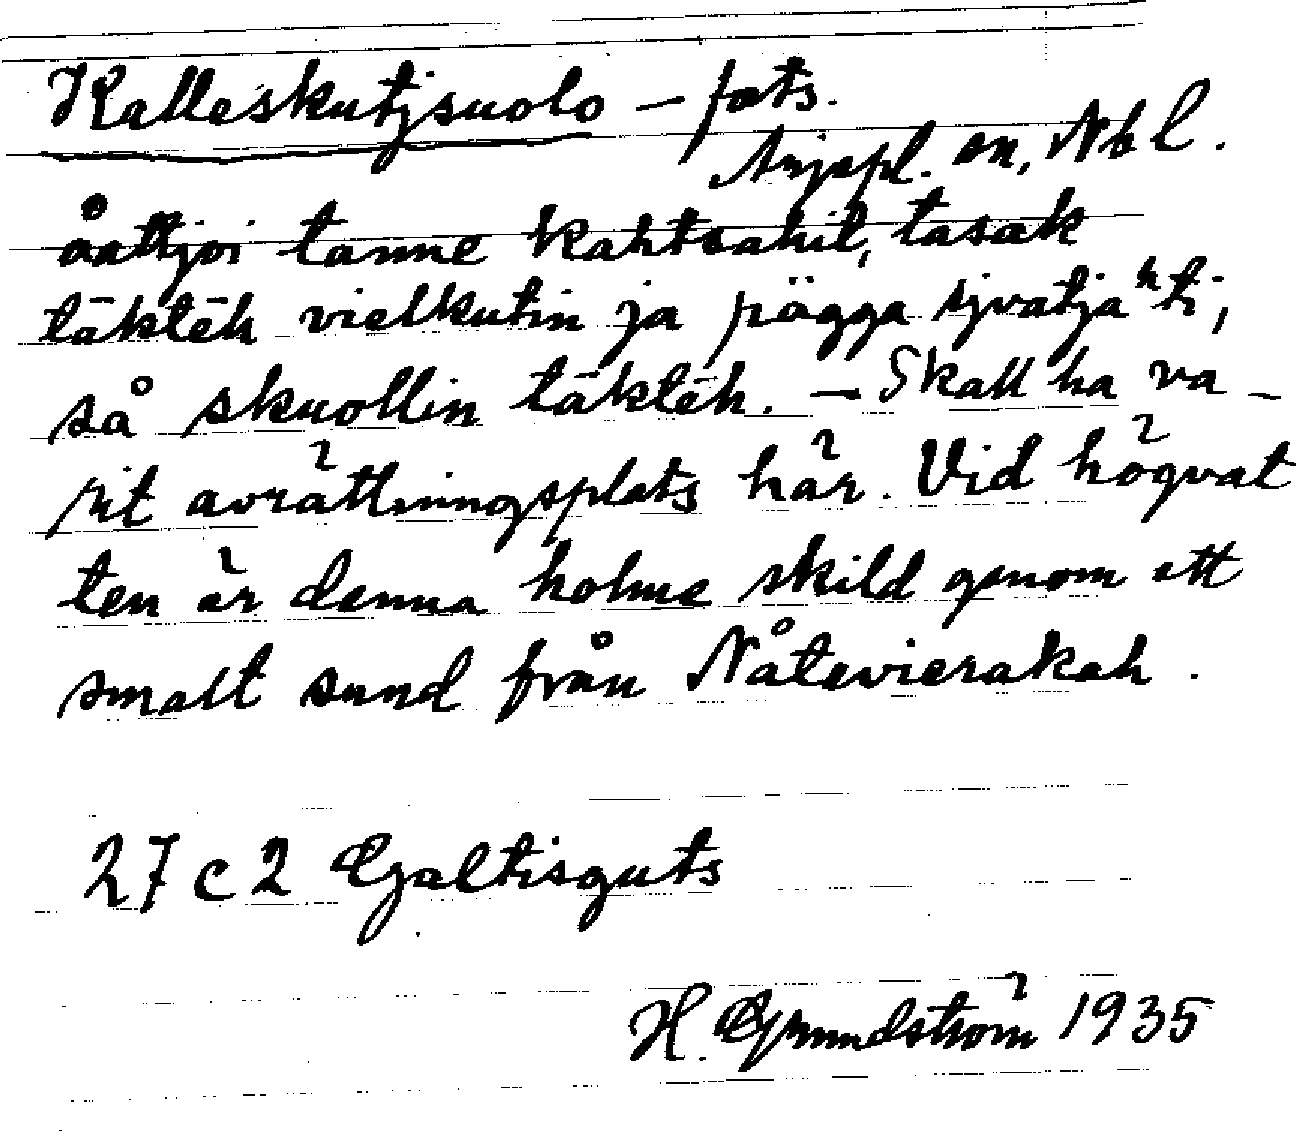 Kalleskutjsuolo – fots.
Arjepl. sn, Nbl.
åättjoi tanne kahtsahit, tasak
täktēh vielkutin ja pägga sjvatjaʰti,
så skuollin täktēh. – Skall ha va-
rit avrättningsplats här. Vid högvat
ten är denna holme skild genom ett
smalt sund från Nåtevierakah.
27 c 2 Galtisguts
H. Grundström 1935